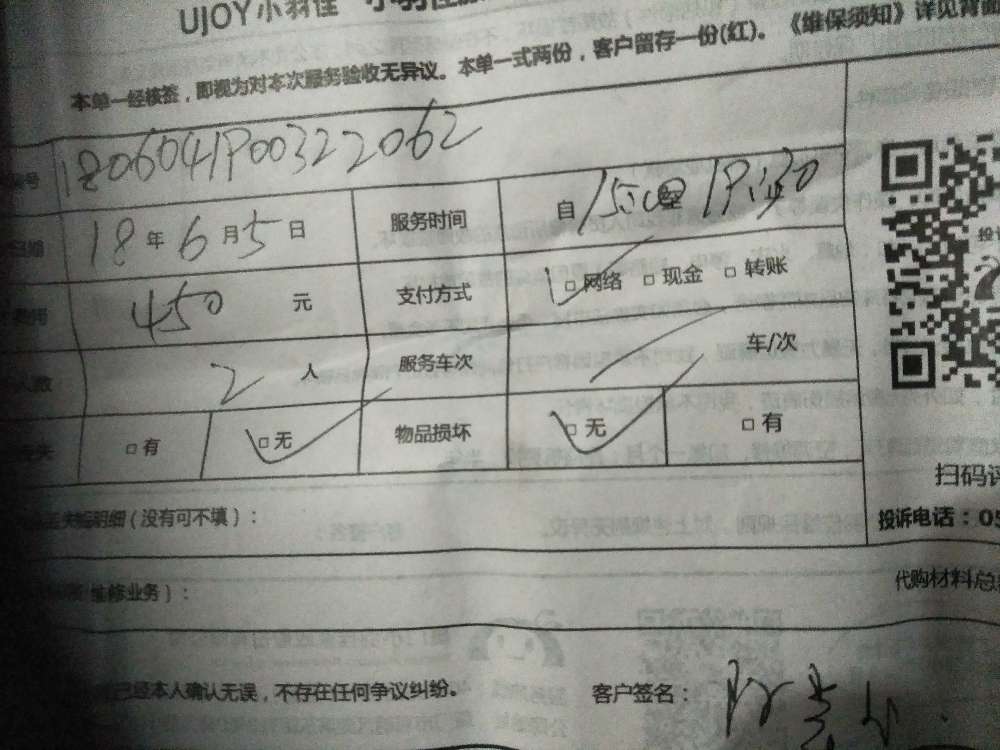 UJOY小羽佳 小羽佳
本单一经核签，即视为对本次服务验收无异议。本单一式两份，客户留存一份(红)。《维保须知》详见背面
号 1806041P00322062
日期 18年6月5日 服务时间 自15:00至19:30
费用 450元 支付方式 □网络 □现金 □转账
人数 2人 服务车次 车/次
□有 □无 物品损坏 □无 □有
扫码评
明细(没有可不填)：
投诉电话：05
维修业务)：
代购材料总
已经本人确认无误，不存在任何争议纠纷。 客户签名：